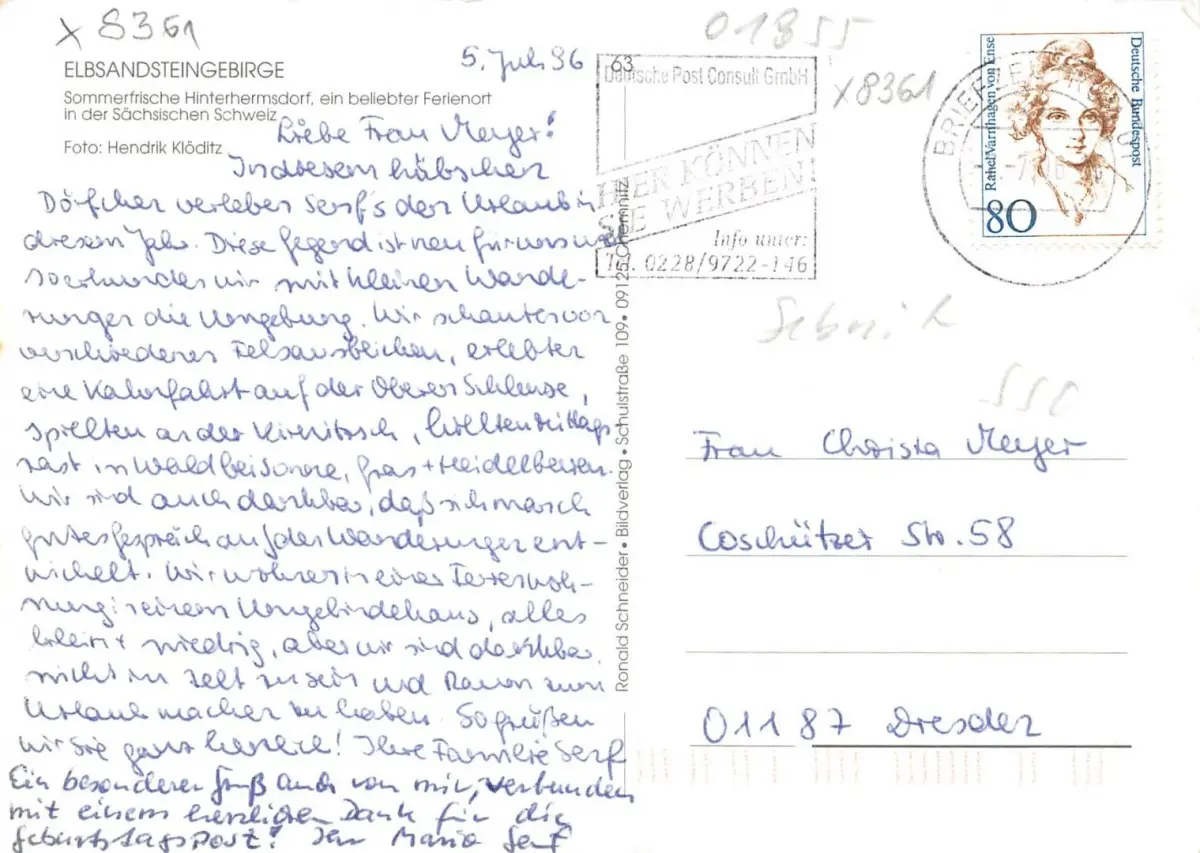 x 8361
01855
x8361
ELBSANDSTEINGEBIRGE
Sommerfrische Hinterhermsdorf, ein beliebter Ferienort
in der Sächsischen Schweiz
Foto: Hendrik Klöditz
5. Juli 96
Liebe Frau Meyer!
In diesem hübschen
Dörfchen verleben Senf's den Urlaub in
diesem Jahr. Diese Gegend ist neu für uns und
so erkunden wir mit kleinen Wande-
rungen die Umgebung. Wir schauten von
verschiedenen Felsausblicken, erlebten
eine Kahnfahrt auf der Oberen Schleuse,
spielten an der Kirnitzsch, hielten Mittags
rast im Wald bei Sonne, Gras + Heidelbeeren.
Wir sind auch dankbar, daß sich manch
gutes Gespräch auf den Wanderungen ent-
wickelt. Wir wohnen in einer Ferienwoh-
nung in einem Umgebindehaus, alles
klein + niedrig, aber wir sind dankbar,
nicht im Zelt zu sein und Raum zum
Urlaub machen zu haben. So grüßen
wir Sie ganz herzlich! Ihre Familie Senf
Ein besonderer Gruß auch von mir, verbunden
mit einem herzlichen Dank für die
Geburtstagspost! Ihr Mario Senf
63
Ronald Schneider • Bildverlag • Schulstraße 109 • 09125 Chemnitz
Deutsche Post Consult GmbH
HIER KÖNNEN
SIE WERBEN!
Info unter:
Tel. 0228/9722-146
BRIEFZENTRUM
Rahel Varnhagen von Ense
Deutsche Bundespost
80
Sebnitz
Frau Christa Meyer
Coschützer Str. 58
01187 Dresden